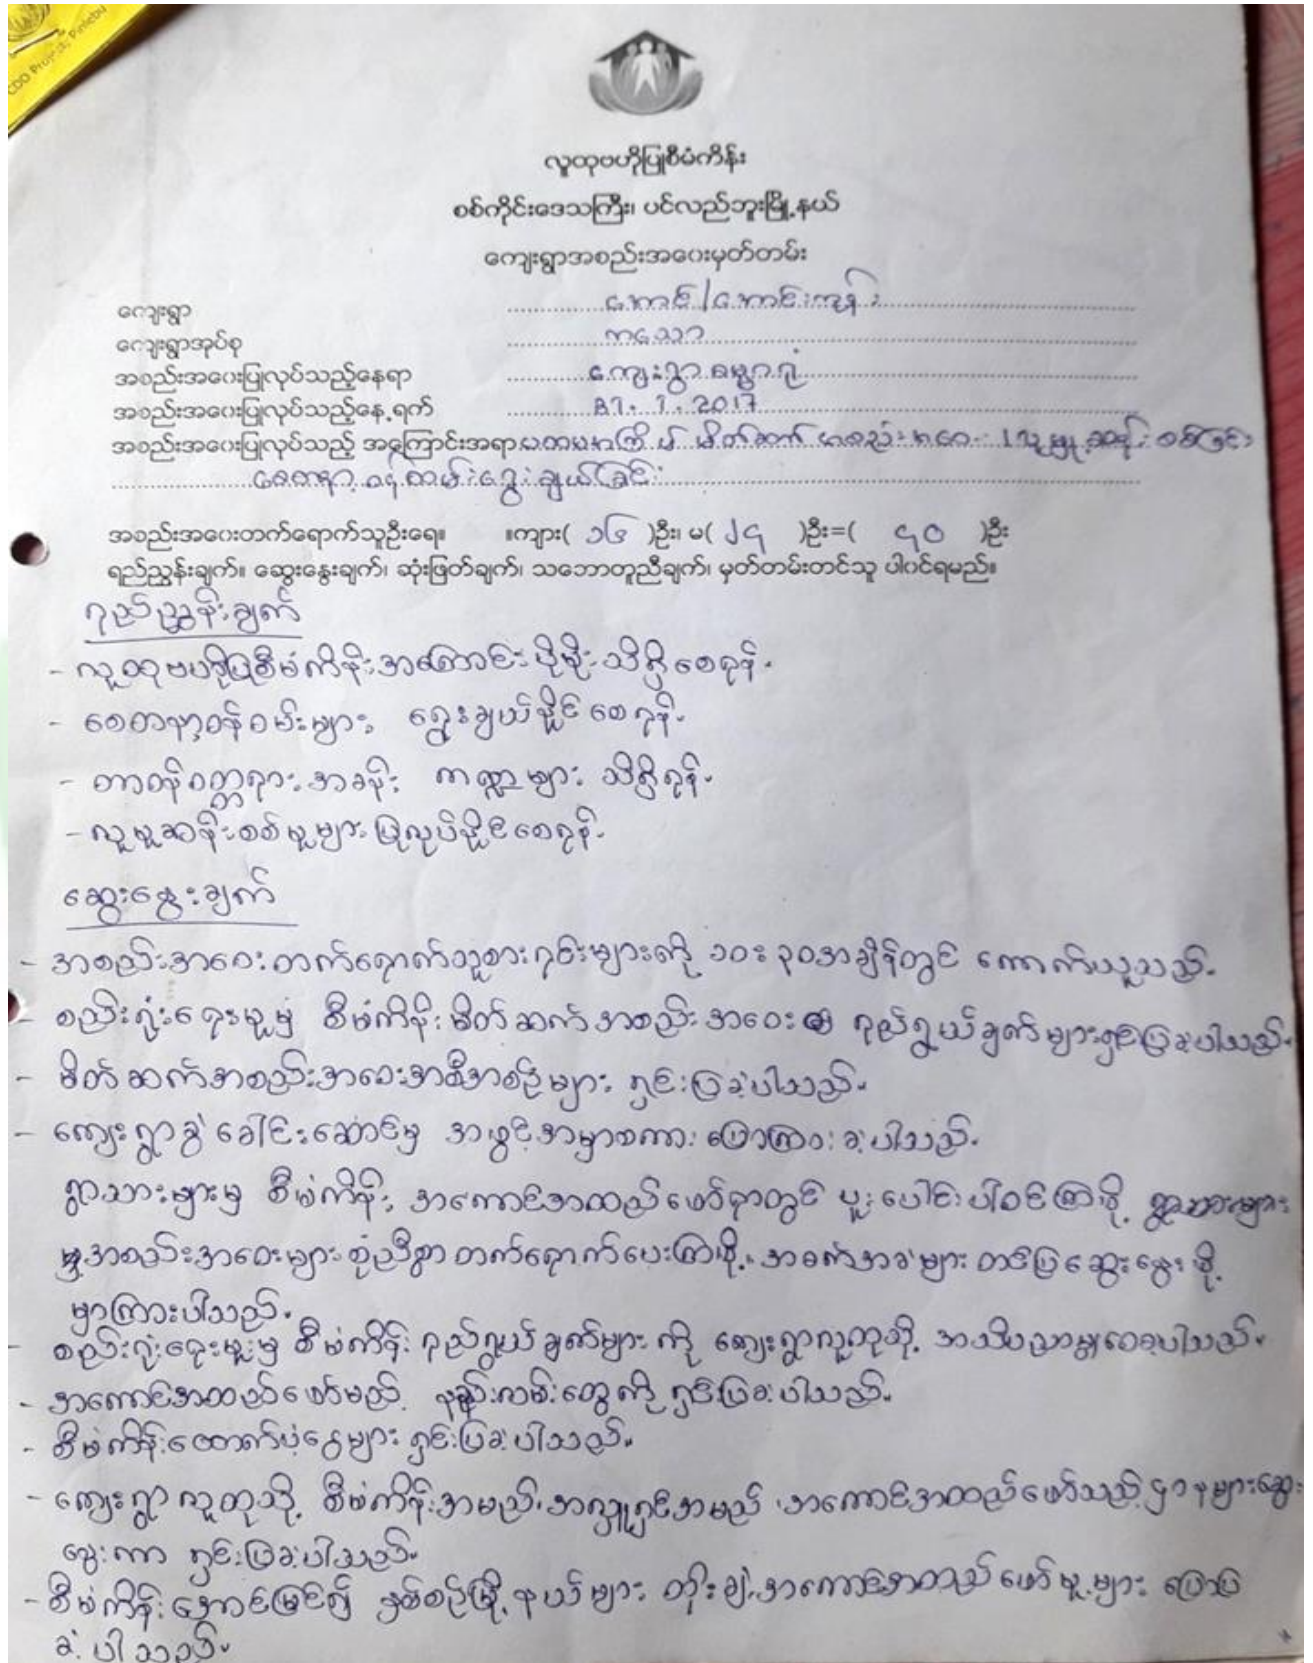 CDO Project, Pinlebu
လူထုဗဟိုပြုစီမံကိန်း
စစ်ကိုင်းဒေသကြီး၊ ပင်လည်ဘူးမြို့နယ်
ကျေးရွာအစည်းအဝေးမှတ်တမ်း
ကျေးရွာ အောင် / အောင်းကုန်း
ကျေးရွာအုပ်စု ကသော
အစည်းအဝေးပြုလုပ်သည့်နေရာ ကျေးရွာ ဓမ္မာရုံ
အစည်းအဝေးပြုလုပ်သည့်နေ့ရက် 27. 1. 2017
အစည်းအဝေးပြုလုပ်သည့် အကြောင်းအရာ ပထမအကြိမ် မိတ်ဆက် အစည်းအဝေး ၊ လူမှုဆန်းစစ်ခြင်း
စေတနာ့ဝန်ထမ်းရွေးချယ်ခြင်း
အစည်းအဝေးတက်ရောက်သူဦးရေ။ ။ကျား( ၁၆ )ဦး၊ မ( ၂၄ )ဦး=( ၄၀ )ဦး
ရည်ညွှန်းချက်။ ဆွေးနွေးချက်၊ ဆုံးဖြတ်ချက်၊ သဘောတူညီချက်၊ မှတ်တမ်းတင်သူ ပါဝင်ရမည်။
ရည်ညွှန်းချက်
- လူထုဗဟိုပြုစီမံကိန်းအကြောင်း ပိုမိုသိရှိစေရန်။
- စေတနာ့ဝန်ထမ်းများ ရွေးချယ်နိုင်စေရန်။
- တာဝန်ဝတ္တရား အခန်းကဏ္ဍများ သိရှိရန်။
- လူမှုဆန်းစစ်မှုများ ပြုလုပ်နိုင်စေရန်။
ဆွေးနွေးချက်
- အစည်းအဝေးတက်ရောက်သူစာရင်းများကို ၁၀း၃၀အချိန်တွင် ကောက်ယူသည်။
- စည်းရုံးရေးမှူးမှ စီမံကိန်းမိတ်ဆက်အစည်းအဝေး ရည်ရွယ်ချက်များရှင်းပြခဲ့ပါသည်။
- မိတ်ဆက်အစည်းအဝေးအစီအစဉ်များ ရှင်းပြခဲ့ပါသည်။
- ကျေးရွာခွဲ ခေါင်းဆောင်မှ အဖွင့်အမှာစကား ပြောကြားခဲ့ပါသည်။
ရွာသားများမှ စီမံကိန်း အကောင်အထည်ဖော်ရာတွင် ပူးပေါင်းပါဝင်ကြဖို့ ရွာသားများ
မှအစည်းအဝေးများ စုံညီစွာ တက်ရောက်ပေးကြဖို့၊ အခက်အခဲများ တင်ပြဆွေးနွေးဖို့
မှာကြားပါသည်။
- စည်းရုံးရေးမှူးမှ စီမံကိန်း ရည်ရွယ်ချက်များ ကို ကျေးရွာလူထုသို့ အသိပညာမျှဝေခဲ့ပါသည်။
- အကောင်အထည်ဖော်မည့် နည်းလမ်းတွေကို ရှင်းပြခဲ့ပါသည်။
- စီမံကိန်းထောက်ပံ့ငွေများ ရှင်းပြခဲ့ပါသည်။
- ကျေးရွာ လူထုသို့ စီမံကိန်းအမည်၊ အလှူရှင်အမည် ၊ အကောင်အထည်ဖော်သည့် ဌာနများဆွေး
နွေးကာ ရှင်းပြခဲ့ပါသည်။
- စီမံကိန်းအောင်မြင်၍ နှစ်စဉ်မြို့နယ်များ တိုးချဲ့ အကောင်အထည်ဖော်မှု့များ ပြောပြ
ခဲ့ပါသည်။